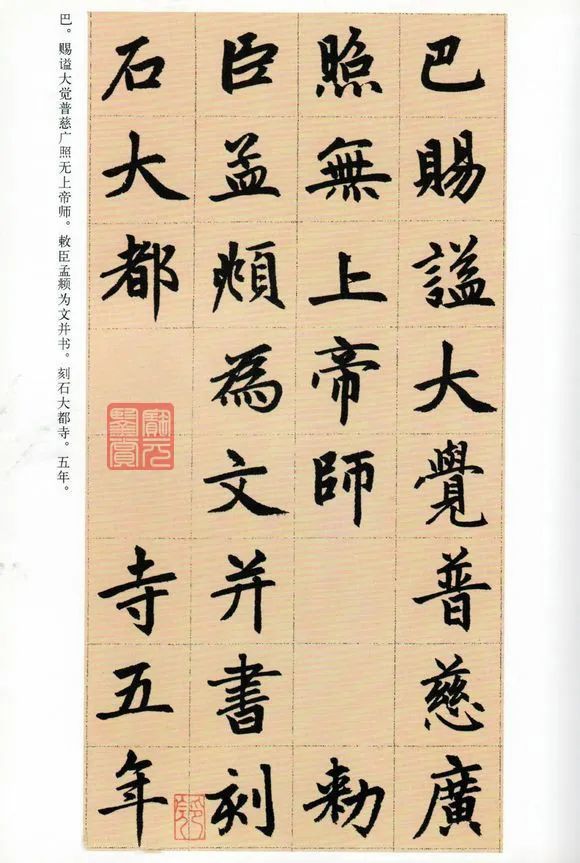 巴賜謚大覺普慈廣
照無上帝師 勅
臣孟頫為文并書刻
石大都 寺五年
巴。赐谥大觉普慈广照无上帝师。敕臣孟頫为文并书。刻石大都寺。五年。